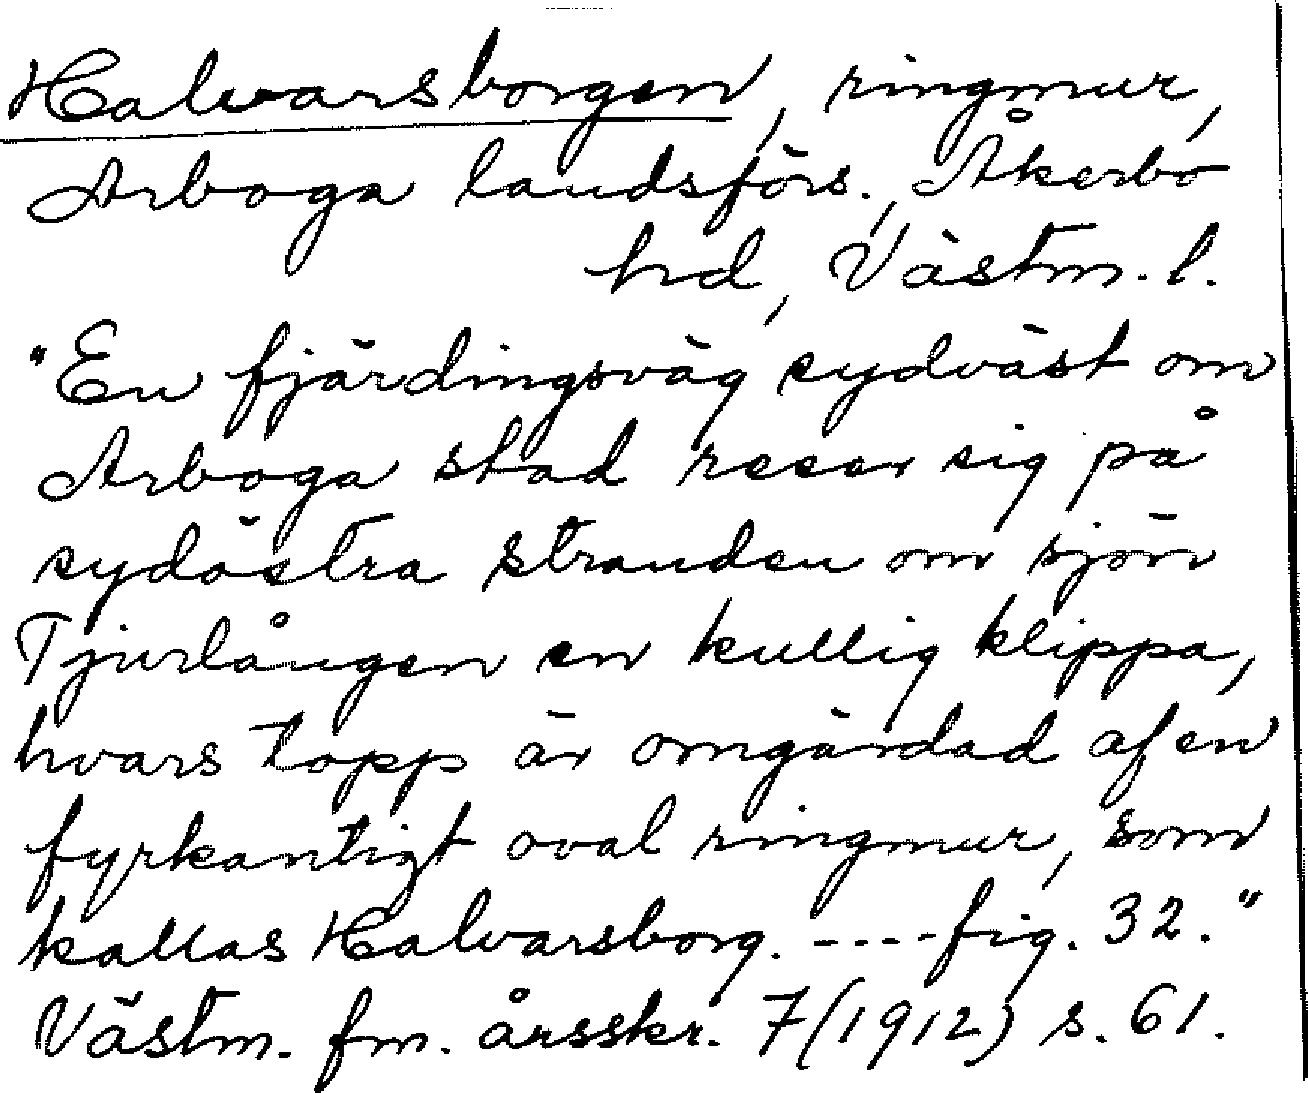 Halvarsborgen, ringmur,
Arboga landsförs., Åkerbo
hd, Västm. l.
"En fjärdingsväg sydväst om
Arboga stad reser sig på
sydöstra stranden om sjön
Tjurlången en kullig klippa,
hvars topp är omgärdad af en
fyrkantigt oval ringmur, som
kallas Halvarsborg. ----fig. 32."
Västm. fm. årsskr. 7(1912) s. 61.